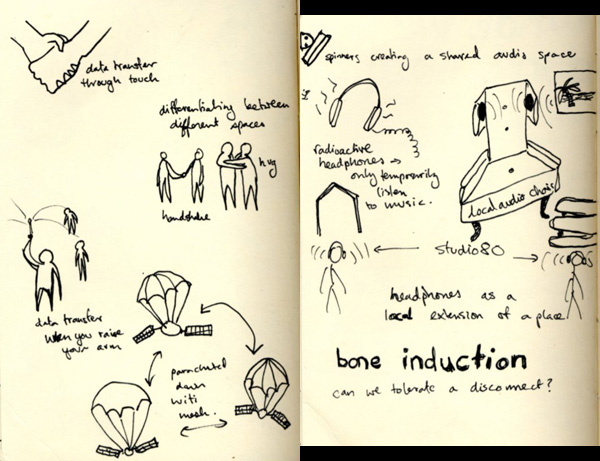 data transfer
through touch
differentiating between
different spaces
hug
handshake
data transfer
when you raise
your arm
parachuted
down
wifi
mesh.
spinners creating a shared audio space
radioactive
headphones →
only temporarily
listen
to music.
local audio chair
studio80
headphones as a
local extension of a place
bone induction
can we tolerate a disconnect?